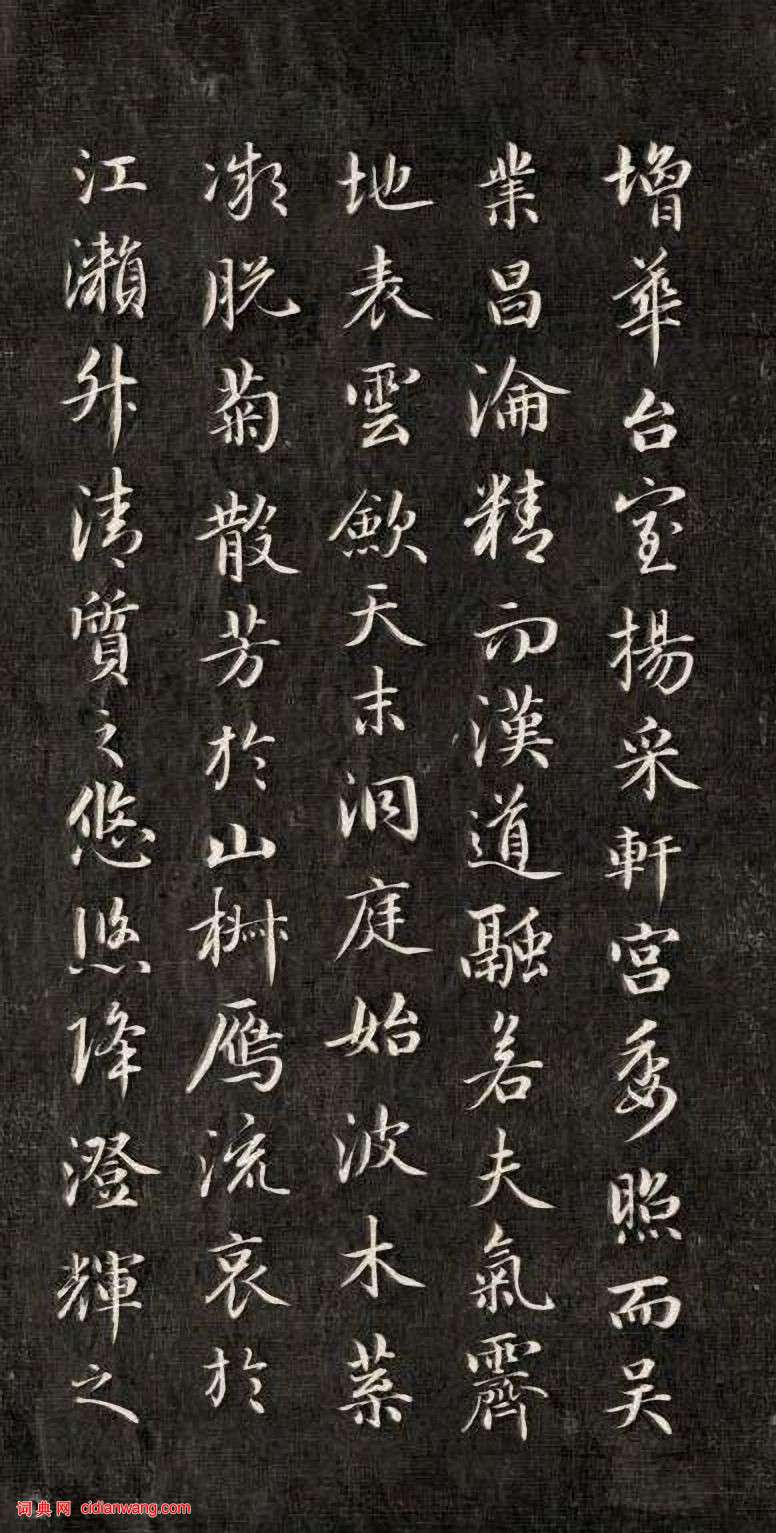 增華台室揚采軒宮委照而吴
業昌淪精而漢道融若夫氣霽
地表雲歛天末洞庭始波木葉
微脫菊散芳於山椒鴈流哀於
江瀨升清質之悠悠降澄輝之
词典网 cidianwang.com